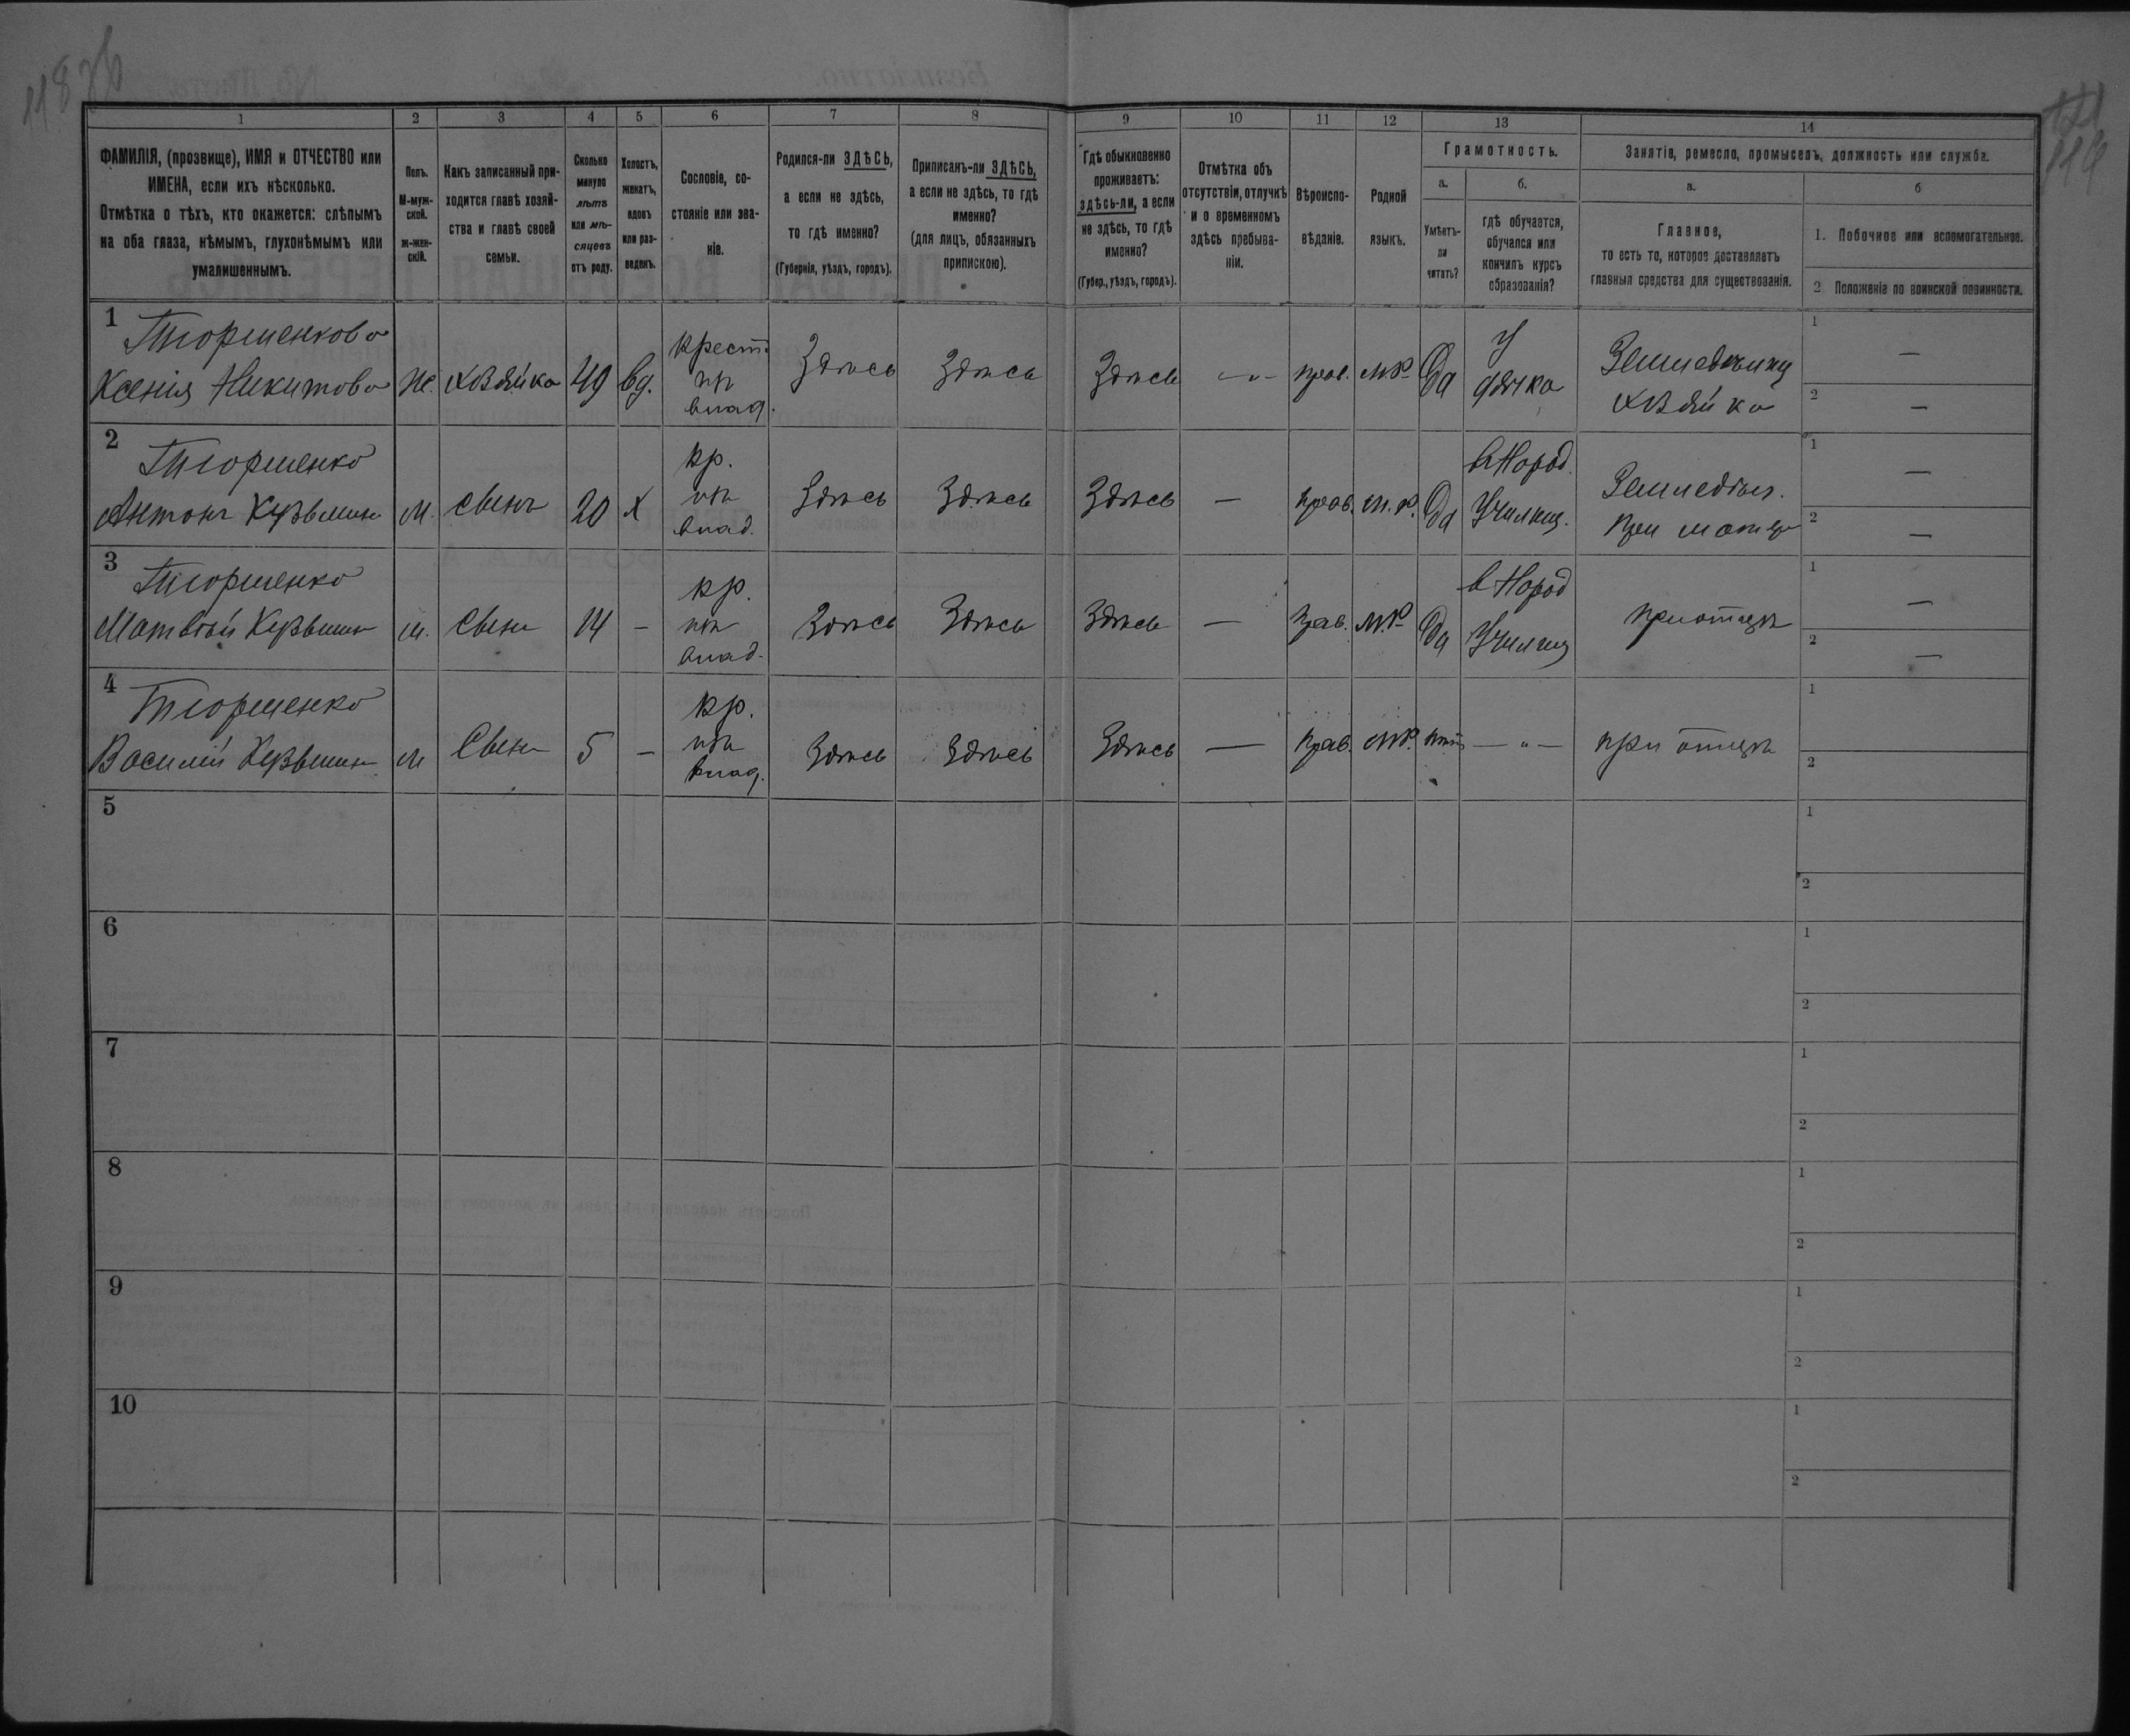 118 об
119
1
2
3
4
5
6
7
8
9
10
11
12
13
14
ФАМИЛІЯ, (прозвище), ИМЯ и ОТЧЕСТВО или
ИМЕНА, если ихъ нѣсколько.
Отмѣтка о тѣхъ, кто окажется: слѣпымъ
на оба глаза, нѣмымъ, глухонѣмымъ или
умалишеннымъ.
Полъ.
М-муж-
ской.
Ж-жен-
скій.
Какъ записанный при-
ходится главѣ хозяй-
ства и главѣ своей
семьи.
Сколько
минуло
лѣтъ
или мѣ-
сяцевъ
отъ роду.
Холостъ,
женатъ,
вдовъ
или раз-
веденъ.
Сословіе, со-
стояніе или зва-
ніе.
Родился-ли ЗДѢСЬ,
а если не здѣсь,
то гдѣ именно?
(Губернія, уѣздъ, городъ).
Приписанъ-ли ЗДѢСЬ,
а если не здѣсь, то гдѣ
именно?
(для лицъ, обязанныхъ
припискою).
Гдѣ обыкновенно
проживаетъ:
здѣсь-ли, а если
не здѣсь, то гдѣ
именно?
(Губер., уѣздъ, городъ).
Отмѣтка объ
отсутствіи, отлучкѣ
и о временномъ
здѣсь пребыва-
ніи.
Вѣроиспо-
вѣданіе.
Родной
языкъ.
Грамотность.
а.
Умѣетъ-
ли
читать?
б.
гдѣ обучается,
обучался или
кончилъ курсъ
образованія?
Занятіе, ремесло, промыселъ, должность или служба.
а.
Главное,
то есть то, которое доставляетъ
главныя средства для существованія.
б
1. Побочное или вспомогательное.
2 Положеніе по воинской повинности.
1
Ксенія Никитова
Ж.
хозяйка
49
вд.
крест.
влад.
Здѣсь
Здѣсь
Здѣсь
— " —
прав.
М.Р.
Да
У
дячка
хозяйка
1 —
2 —
2
Антонъ Кузьминъ
М.
Сынъ
20
Х
кр.
влад.
Здѣсь
Здѣсь
Здѣсь
—
прав.
М.Р.
Да
в Народ.
Училищ.
Земледѣл.
При матери
1 —
2 —
3
Матвѣй Кузьмин
М.
Сынъ
14
—
кр.
влад.
Здѣсь
Здѣсь
Здѣсь
—
Прав.
М.Р.
Да
в Народ
Училищ
при отцѣ
1 —
2 —
4
Василій Кузьмин
М
Сынъ
5
—
кр.
влад.
Здѣсь
Здѣсь
Здѣсь
—
Прав.
М.Р.
нѣт
— " —
при отцѣ
1
2
5
1
2
6
1
2
7
1
2
8
1
2
9
1
2
10
1
2